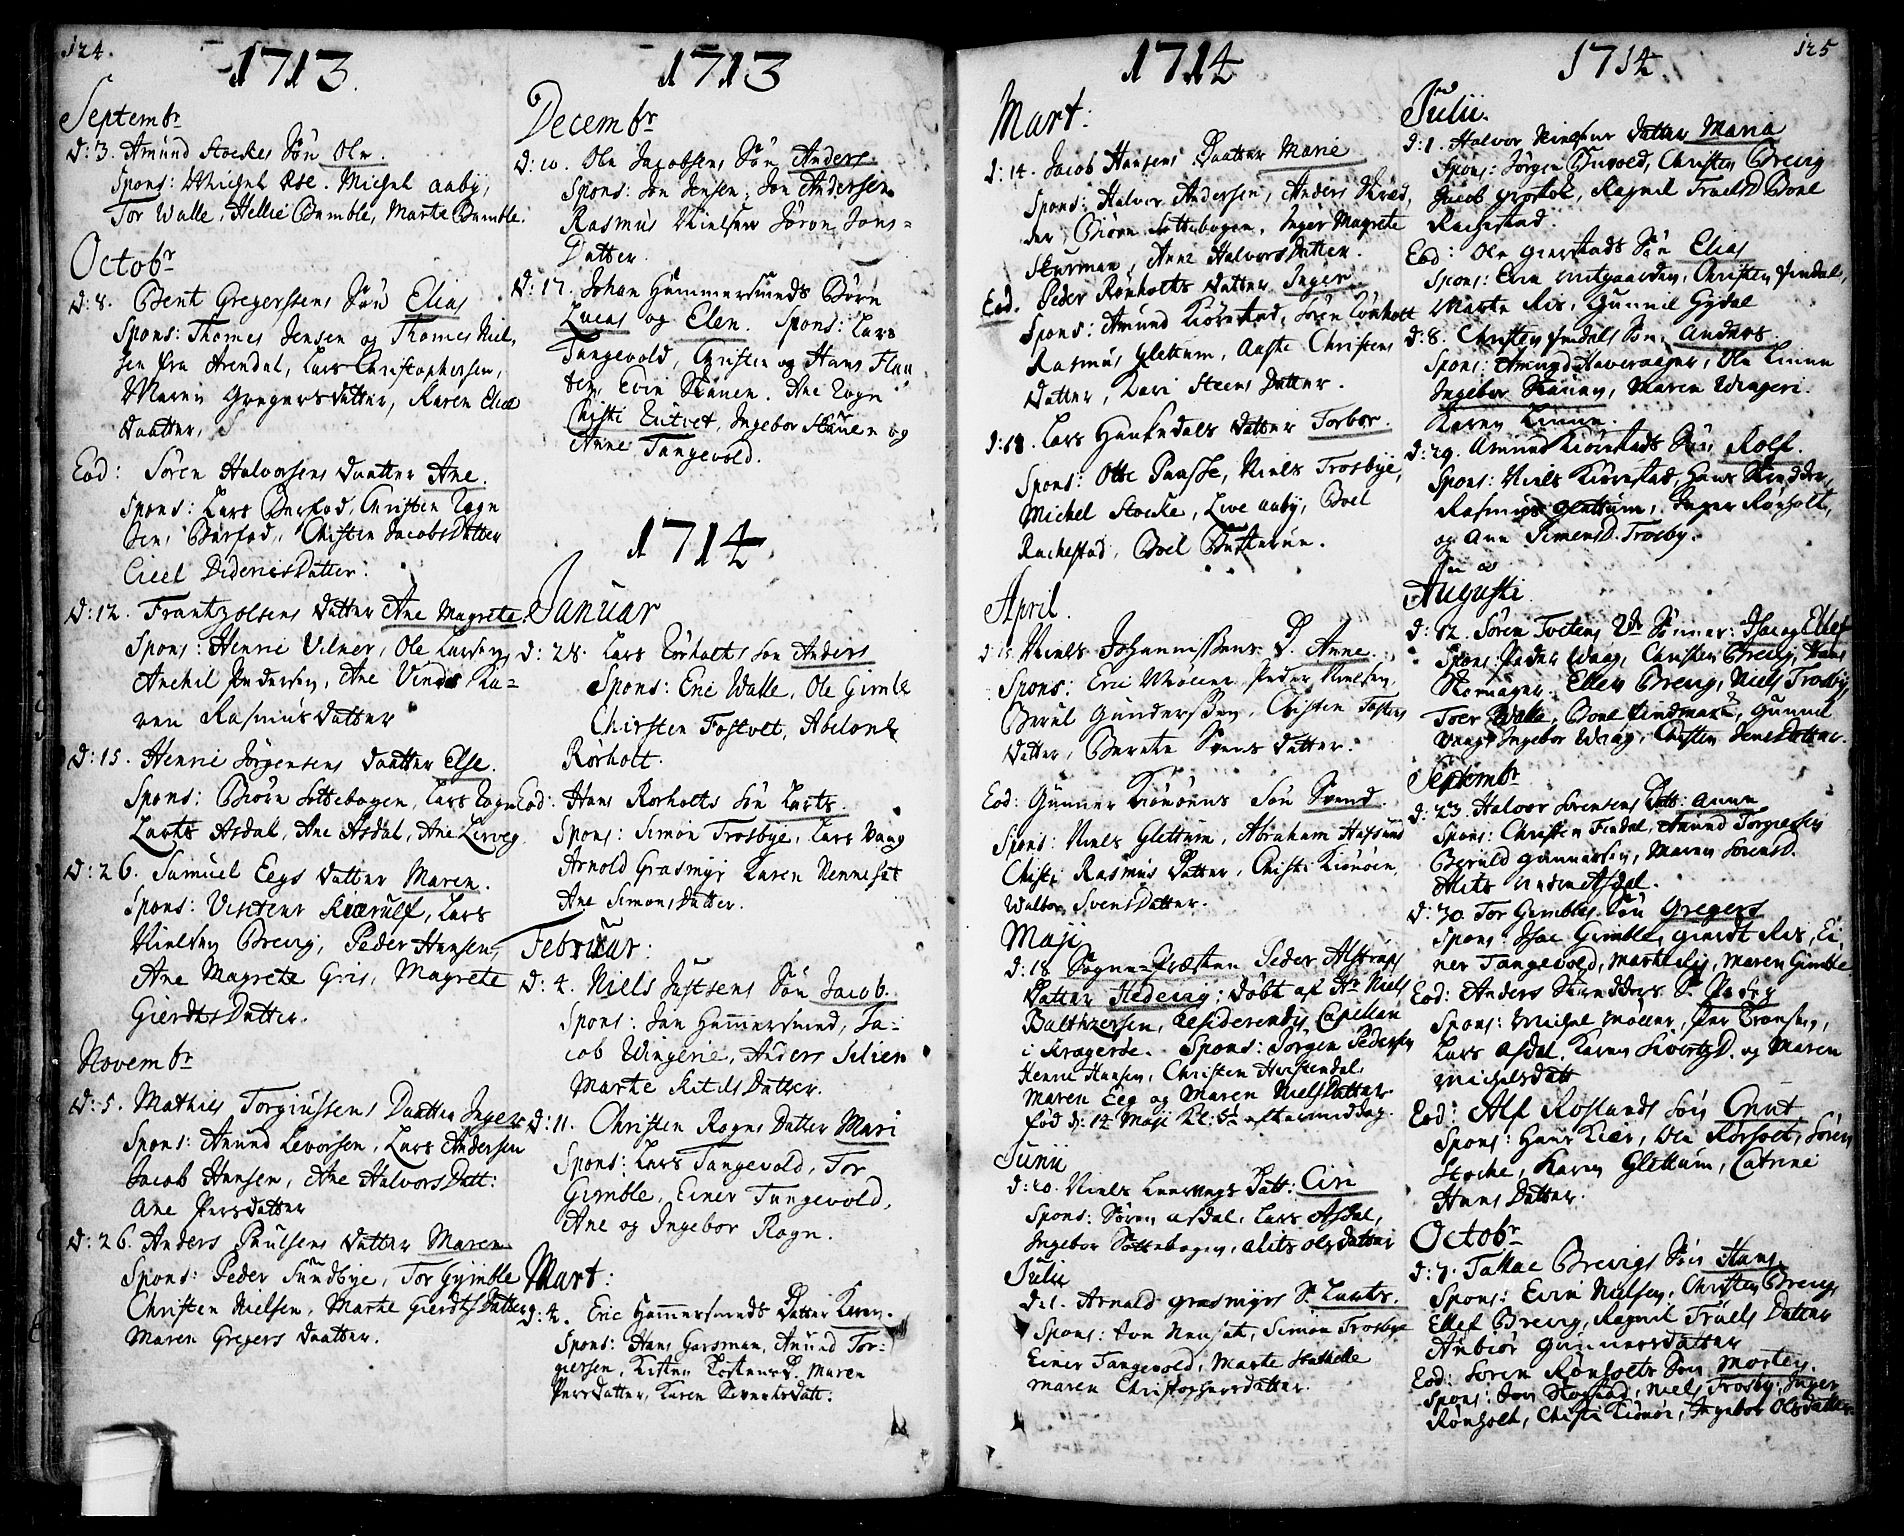 124.
1713.
Septembr
D: 3. Amund Stockes Sön Ole.
Spons: Michel Ree. Michel aaby,
Tor Walle, Hellie Bamble, Marte Bamble.
Octobr
D: 8. Bent Gregerssens Sön Elias
Spons: Thomes Jensen og Thomes Niel,
sen fra Arendal, Lars Christophersen,
Maren Gregersdatter, Karen Eliæ
Daatter,
Eod: Sören Halvorsens Daatter Ane.
Spons: Lars Barstad, Christen Rogn
Sen, Barstad, Christen JacobsDatter
Cicel DiderichsDatter.
D: 12. Frantz olsens Datter Ane Magrete.
Spons: Henric Vilner, Ole Larsen,
Anchil Pedersen, Ane Vinds Ka=
ren Rasmusdatter
D: 15. Henric Jörgensens Daatter Else.
Spons: Biörn Sottebogen, Lars Rogn
Larts Asdal, Ane Asdal, Ane Lerveg.
D: 26. Samuel Eegs Datter Maren.
Spons: Visiteur Kierulf, Lars
Nielsen Brevig, Peder Hansen,
Ane Magrete Gris, Magrete
GierdtsDatter.
Novembr
D: 5. Mathies Torgiussens Daatter Inger
Spons: Amund Levorsen, Lars Andersen
Jacob Hansen, Ane Halvors Datt:
Ane Persdatter
D: 26. Anders Paulsens Datter Maren
Spons: Peder Sundbye, Tor Gimble
Christen Nielsen, Marte GierdtsDatter
Maren Gregers Daatter.
1713
Decembr
D: 10. Ole Jacobsens Sön Anders.
Spons: Jon Jensen, Jon Andersen
Rasmus Nielsen Jöron Jons=
Datter.
D: 17. Johan Hammersmeds Börn
Lucas og Elen. Spons: Lars
Tangevold, Christen og Hans Flau
ten, Evin Stånen. Ane Rogn
Christi Eitvet, Ingebor Stånen og
Anne Tangevold.
1714
Januar
D: 28. Lars Rörholts Sön Anders
Spons: Eric Walle, Ole Gimle
Christen Fostvet, Abelone
Rörholt.
Eod: Hans Rorholts Sön Larts.
Spons: Simon Trosbye, Lars Vaag
Arnold Grasmyr Karen Nenneset
Ane SimonsDatter.
Februar:
D: 4. Niels Justsens Sön Jacob.
Spons: Jon Hamersmed, Ja=
cob Wingerie, Anders Silien
Marte KitilsDatter.
D: 11. Christen Rogns Datter Mari
Spons: Lars Tangevold, Tor
Gimble, Einer Tangevold,
Ane og Ingebor Rogn.
Mart:
D: 4. Eric Hammersmeds Datter Karen.
Spons: Hans Garsman, Amund Tor=
giersen, Kisten TostensD. Maren
Persdatter, Karen Sivertsdatt.
1714
Mart:
D: 14. Jacob Hansens Daatter Marie
Spons: Halvor Andersen, Anders Skræd,
der, Biörn Sottebogen, Inger Magrete
Skurman, Anne HalvorsDatter.
Eod. Peder Rönholts Datter Inger.
Spons: Amund Kiörstad, Sören Rönholt
Rasmus Glettum, Aaste Christens
Datter, Dari Steens Datter.
D: 18. Lars Haukedals Datter Torbor.
Spons: Otte Paaske, Niels Trosbye,
Michel Stocke, Live aaby, Boel
Rachestad, Boel Bustrun.
April.
Niels Johannissens D. Anne.
Spons: Eric Moller Peder Nielsen
Berul Gunderssen, Christen Tostens
Datter, Berete Svens Datter.
Eod: Gunner Kiönöens Sön Svend.
Spons: Niels Glettum, Abraham Hafsund
Christi Rasmus Datter, Christi Kiönöen,
Walbor SvensDatter.
Maji
D: 18 Sogne=Præsten Peder Alstrups
Datter Hedevig: döbt af Hr Niels
Balthzersen, Residerende Capellan
i Kragerøe. Spons: Jörgen Pedersen
Henric Hansen, Christen Herstendal,
Maren Eeg og Maren NielsDatter
Föd d: 14 Maji Kl: 5 eftermiddag.
Junii
D: 20. Niels Leervegs Datt: Ciri
Spons: Sören asdal, Lars Asdal,
Ingebor Sottebogen, alits olsDatter
Julii
D: 1. Arnold grasmyrs S. Larts.
Spons: Jon Neuset, Simon Trosbye
Einer Tangevold, Marte Stathelle
maren Christophersdatter.
1714.
125
Julii.
D: 1. Halvor Nielsens Datter Maria
Spons: Jörgen Buvold, Christen Brevig
Jacob, Ragnil TroelsD Boel
Rachestad.
Eod: Ole gierstads Sön Elias
Spons: Evin mitgaarden, Christen findal,
Marte Ris, Gunnil Gydal
D: 8. Christen findals Sön Anders
Spons: Amund Haveraager, Ole Linne
Ingebor Stånen, Maren Wingeri.
Karen Linne.
D: 29. Amund Kiörstads Sön Rolf.
Spons: Niels Kiörstad, Hans Skredder,
Rasmus Glettum, Inger Rönholt,
og Ane SimensD. Trosby.
Augusti.
D: 12. Sören Toftens 2de Sönner: Isac og Ellef
Spons: Peder Waag, Christen Brevig, Hans
Stomager. Ellen Brevig, Niels Trosby,
Toer Walle, Boel findmark, Gunnil
Vaag, Ingebor Waag, Christen JensDatter.
Septembr
D: 23. Halvor Sörensens Datt: Anne
Spons: Christen Findal, Amund Torgiersen
Beruld gunnersen, Maren SörensD.
Alits Asdal.
D: 30. Tor Gimbles Sön Gregers
Spons: Isac Gimble, gierdt Ris, Ei,
ner Tangevold, Marte Ris, Maren Gimble.
Eod: Anders Skredders S. Peder
Spons: Michel Moller, Per Tronsen,
Lars Asdal. Karen SivertsD. og Maren
michelsdatt
Eod: Alf Röslands Sön Cnut
Spons: Hans Kier, Ole Rörholt, Sören
Stocke, Karen Glettum, Catrine
HansDatter.
Octobr
D: 7. Brevigs Sön Hans
Spons: Evin Nielsen, Christen Brevig
Ellef Brevig, Ragnil Troels Datter
Anbiör Gunnersdatter
Eod: Soren Rönholts Sön Morten.
Spons: Jon Stogstad, Niels Trosby, Inger
Rönholt, Christi Kiönöe, Ingebor Olsdatter